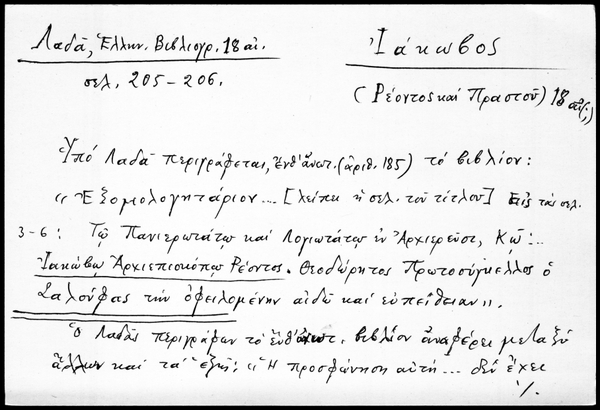 Λαδᾶ, Ἑλλην. Βιβλιογρ. 18 αἰ.
σελ. 205-206.
Ἰάκωβος
(Ρέοντος καὶ Πραστοῦ) 18 αἰ(;)
Ὑπό Λαδᾶ περιγράφεται, ἔνθ' ἀνωτ. (ἀριθ. 185) τό βιβλίον:
«Ἐξομολογητάριον... [λείπει ἡ σελ. τοῦ τίτλου] Εἰς τάς σελ.
3-6: Τῷ Πανιερωτάτῳ καί Λογιωτάτῳ ἐν Ἀρχιερεῦσι, Κῳ:...
Ἰακώβῳ Ἀρχιεπισκόπῳ Ρέοντος. Θεοδώρητος Πρωτοσύγκελλος ὁ
Σαλούφας τήν ὀφειλομένην αἰδῶ καί εὐπείθειαν».
Ὁ Λαδᾶς περιγράφων τό ἔνθ' ἀνωτ. βιβλίον ἀναφέρει μεταξύ
ἄλλων καί τά ἑξῆς: «Ἡ προσφώνηση αὐτή... δέν ἔχει
./.